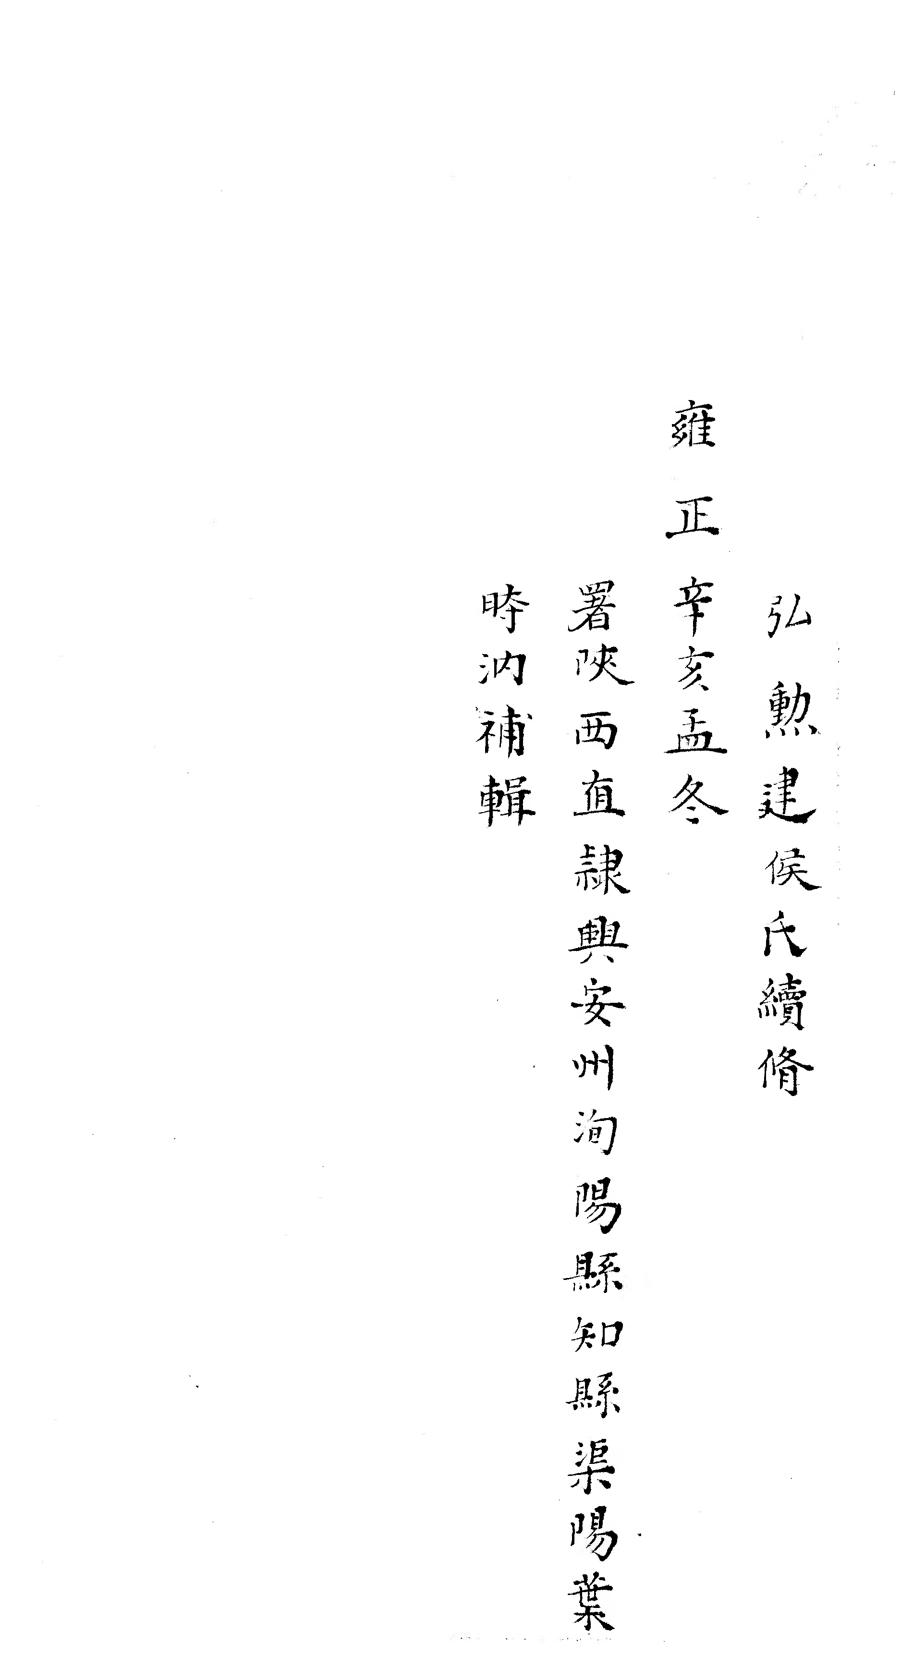 弘勲建侯氏續脩
雍正辛亥孟冬
署陝西直隷興安州洵陽縣知縣渠陽葉
時汭補輯